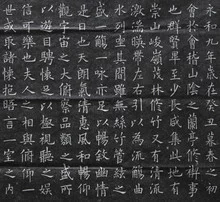 永和九年歲在癸丑暮春之初
會於會稽山陰之蘭亭修禊事
也群賢畢至少長咸集此地有
崇山峻嶺茂林修竹又有清流
激湍映帶左右引以為流觴曲
水列坐其間雖無絲竹管絃之
盛一觴一詠亦足以暢敘幽情
是日也天朗氣清惠風和暢仰
觀宇宙之大俯察品類之盛所
以遊目騁懷足以極視聽之娛
信可樂也夫人之相與俯仰一
世或取諸懷抱晤言一室之內